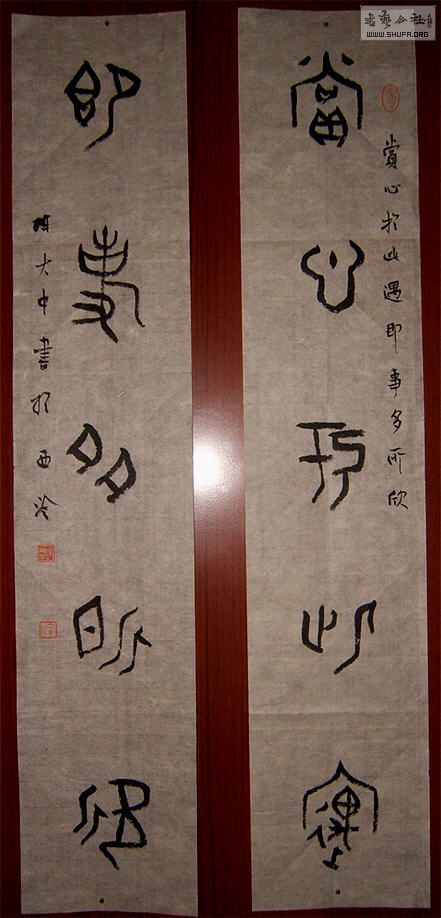 書藝公社
WWW.SHUFA.ORG
賞心於此遇即事多所欣
賞心於此遇
即事多所欣
大中書於西泠